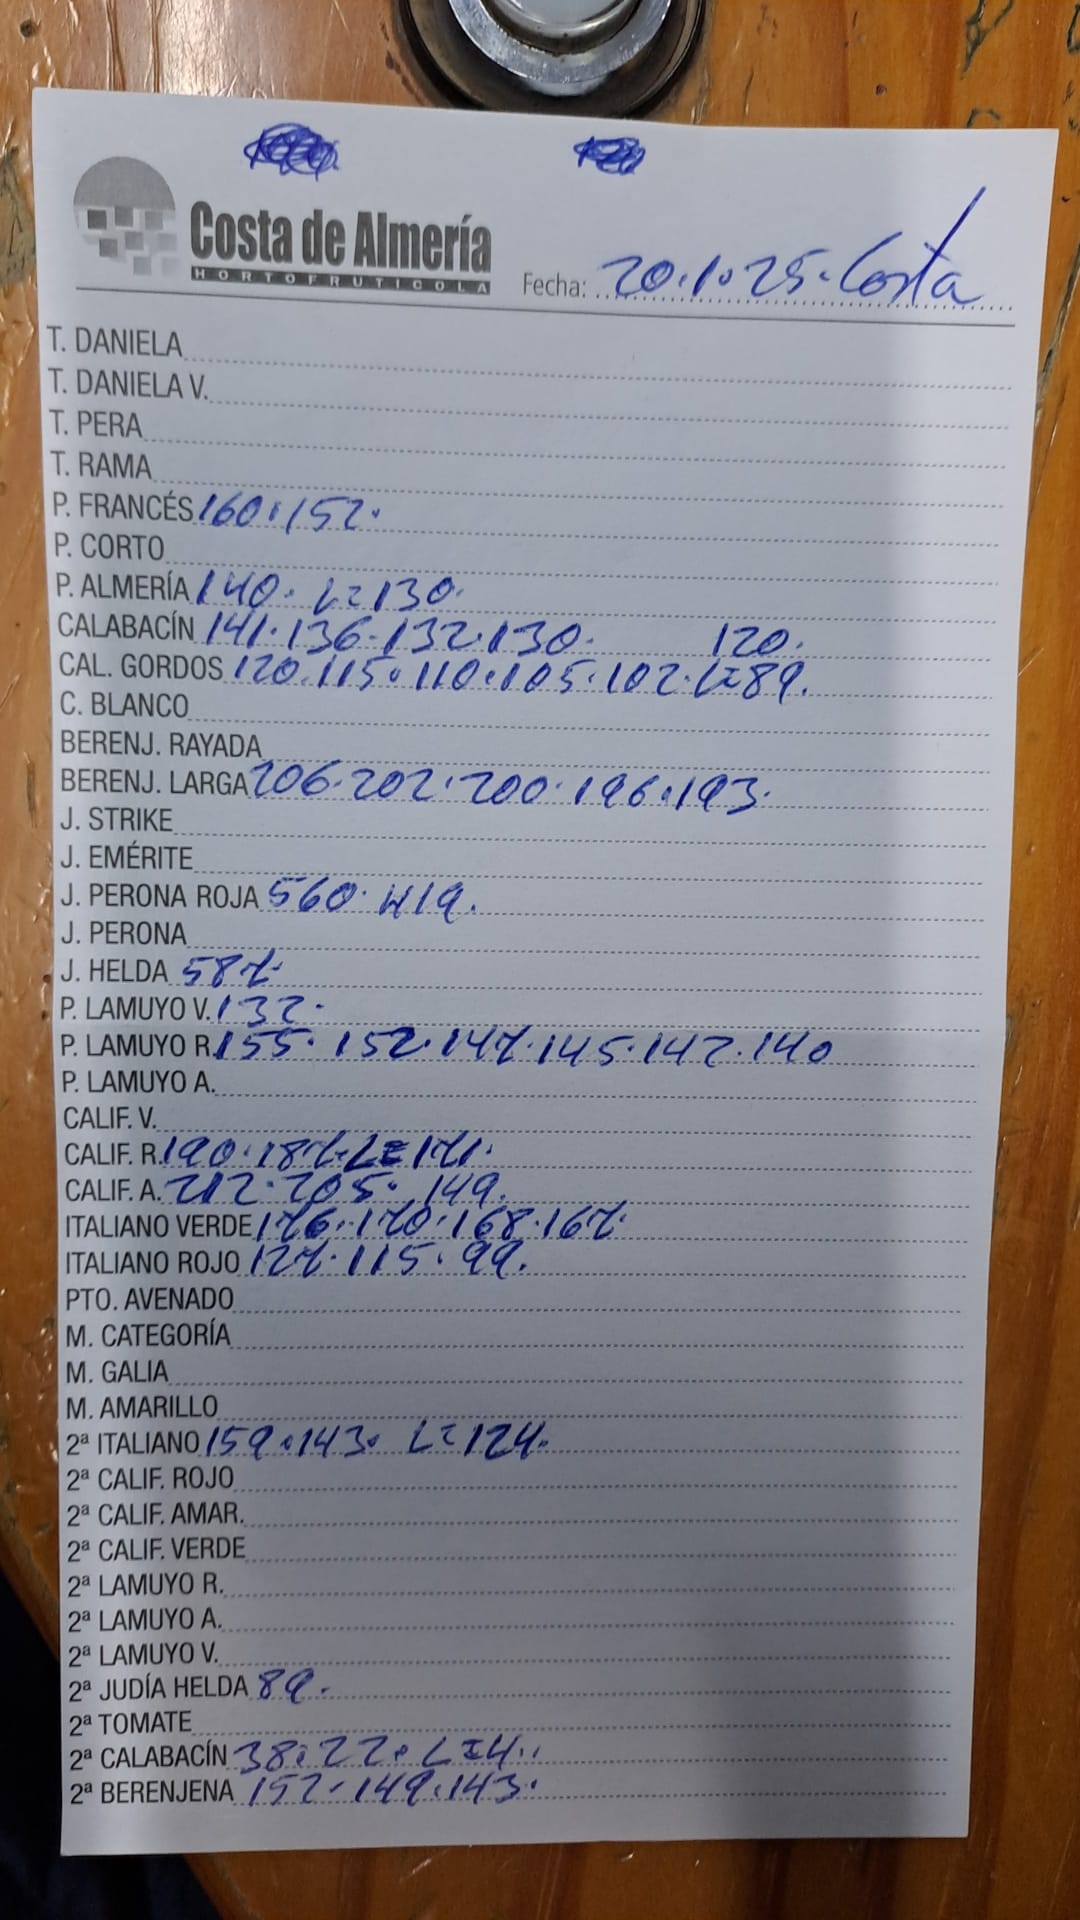 Costa de Almería
HORTOFRUTICOLA
Fecha: 20.1.25. Costa
T. DANIELA
T. DANIELA V.
T. PERA
T. RAMA
P. FRANCÉS 160.152.
P. CORTO
P. ALMERÍA 140. L=130.
CALABACÍN 141.136.132.130. 120.
CAL. GORDOS 120.115.110.105.102.L=89.
C. BLANCO
BERENJ. RAYADA
BERENJ. LARGA 206.202.200.196.193.
J. STRIKE
J. EMÉRITE
J. PERONA ROJA 560. 419.
J. PERONA
J. HELDA 587.
P. LAMUYO V. 132.
P. LAMUYO R. 155.152.147.145.142.140
P. LAMUYO A.
CALIF. V.
CALIF. R. 190.187.L=171.
CALIF. A. 212.205. 149.
ITALIANO VERDE 176.170.168.167.
ITALIANO ROJO 127.115.99.
PTO. AVENADO
M. CATEGORÍA
M. GALIA
M. AMARILLO
2ª ITALIANO 159.143. L=124.
2ª CALIF. ROJO
2ª CALIF. AMAR.
2ª CALIF. VERDE
2ª LAMUYO R.
2ª LAMUYO A.
2ª LAMUYO V.
2ª JUDÍA HELDA 89.
2ª TOMATE
2ª CALABACÍN 38.22. L=4..
2ª BERENJENA 152.149.143.